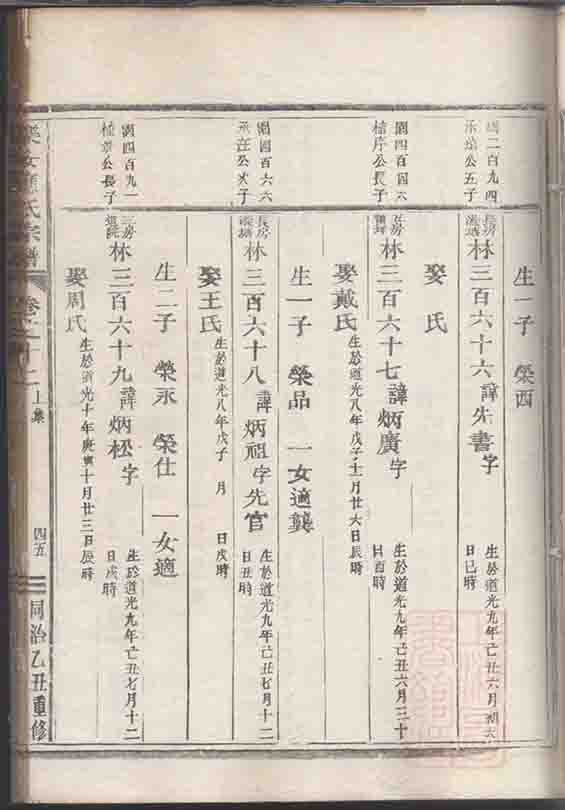 生一子 榮酉
園二百九四
公五子
長房
林三百六十六諱先書字
生於道光九年己丑六月初六
日巳時
娶 氏
園四百四六
楷序公長子
五房
林三百六十七諱炳廣字
生於道光九年己丑六月三十
日酉時
娶戴氏
生於道光八年戊子十二月廿六日辰時
生一子 榮品 一女適龔
園四百六六
承在公次子
長房
林三百六十八諱炳祖字先官
生於道光九年己丑七月十二
日丑時
娶王氏
生於道光八年戊子 月 日戌時
生二子 榮永 榮仕 一女適
園四百九一
公長子
三房
林三百六十九諱炳松字
生於道光九年己丑七月十二
日戌時
娶周氏
生於道光十年庚寅十月廿三日辰時
氏宗譜
卷之十二
上集
四五
同治乙丑重修